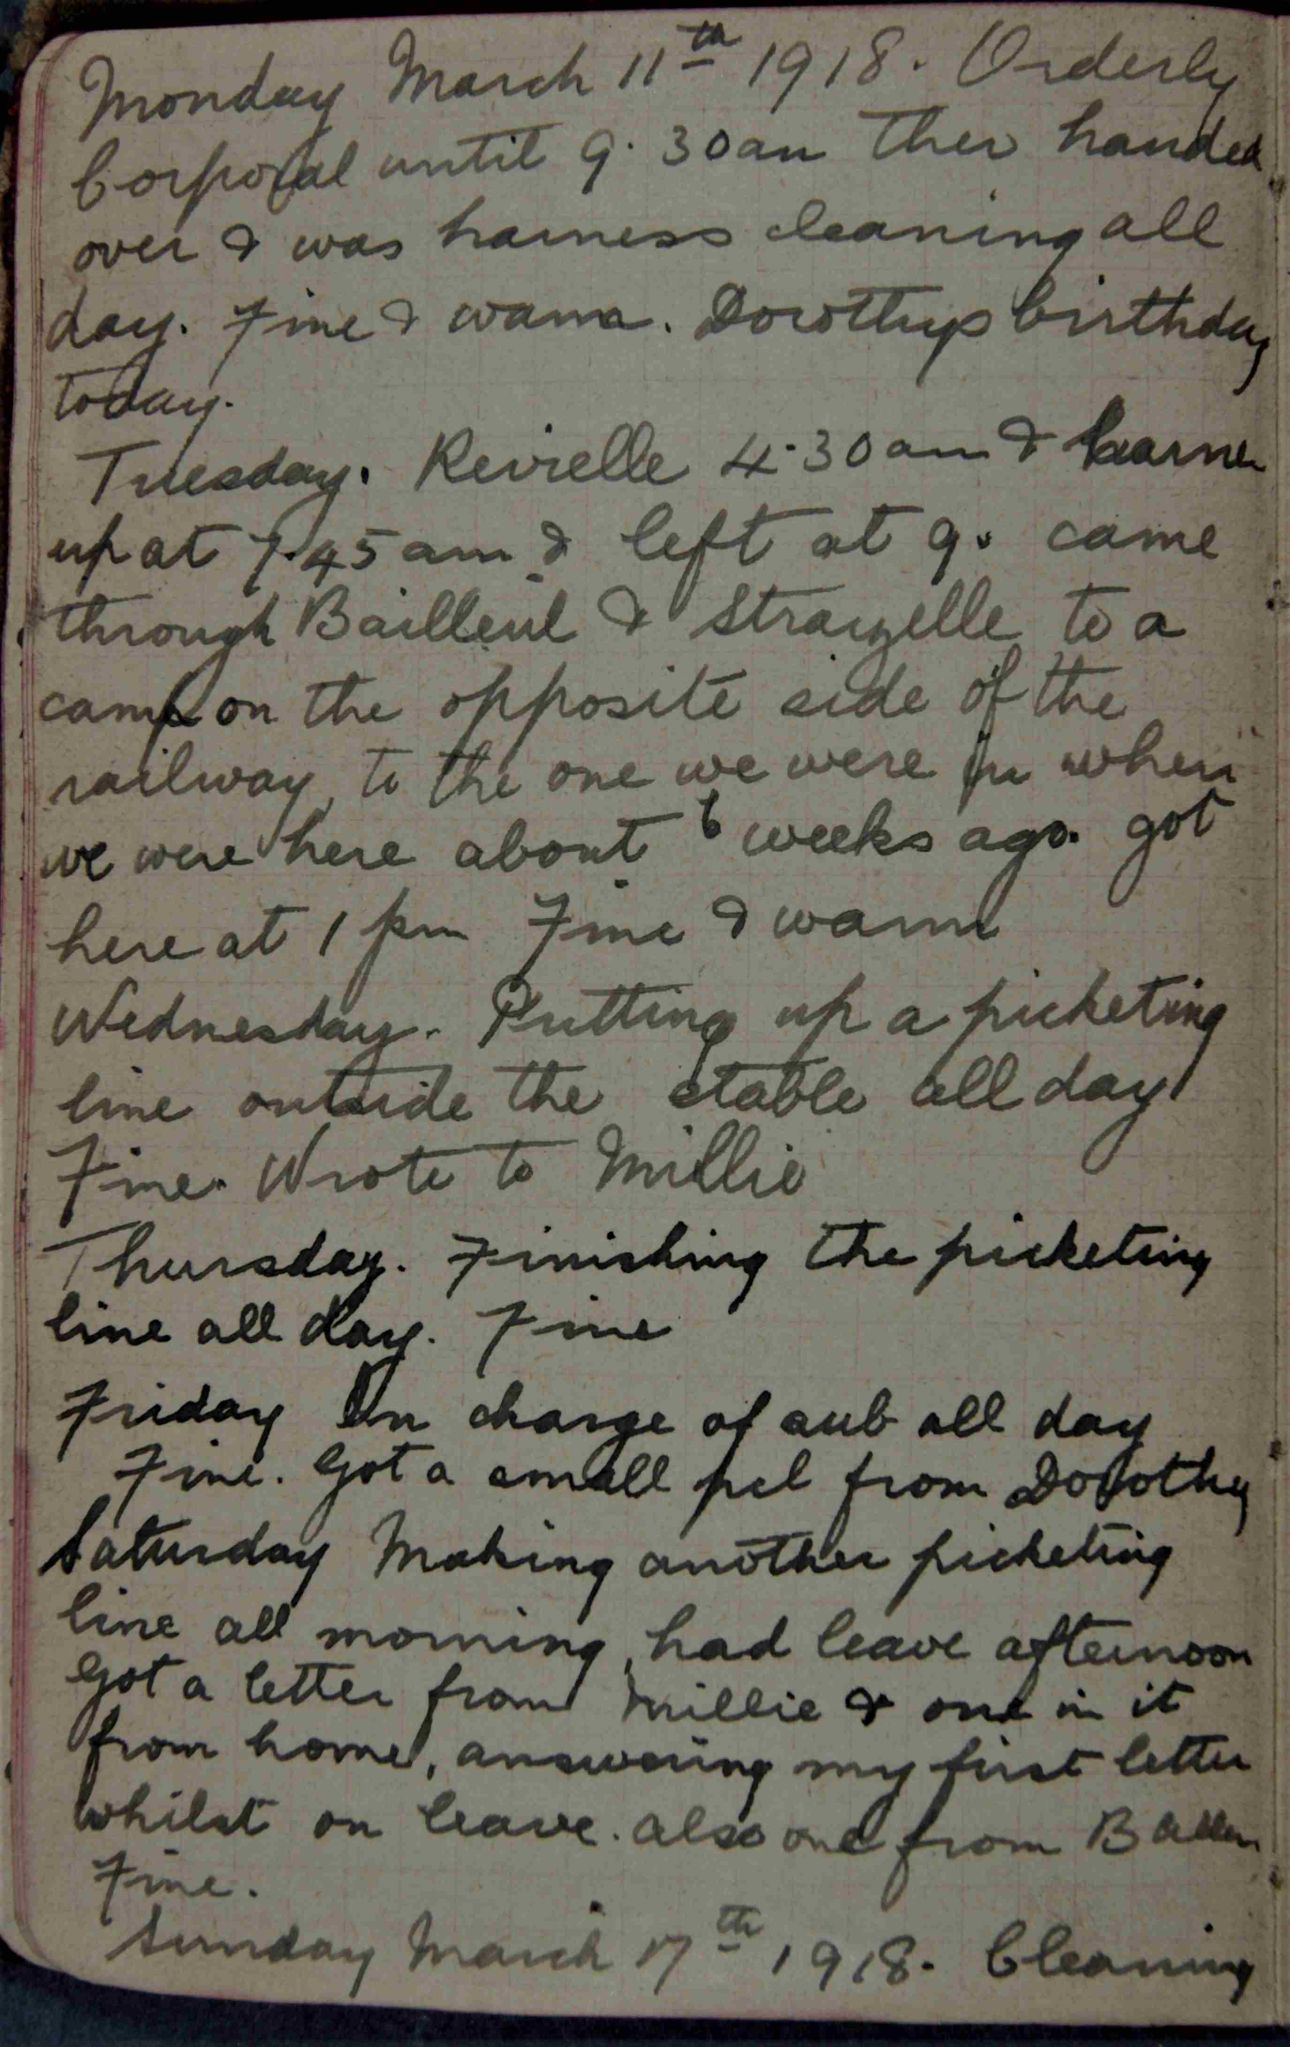 Monday March 11th 1918. Orderly
Corporal until 9.30am then handed
over & was harness cleaning all
day. Fine & warm. Dorothys birthday
today.
Tuesday. Revielle 4.30am &
up at 7.45am & left at 9. came
through Bailleul & Strazelle to a
camp on the opposite side of the
railway, to the one we were in when
we were here about 6 weeks ago. got
here at 1 pm Fine & warm
Wednesday. Putting up a picketing
line outside the stable all day
Fine. Wrote to Millie
Thursday. Finishing the picketing
line all day. Fine
Friday In charge of sub all day
Fine. Got a small pcl from Dorothy
Saturday Making another picketing
line all morning, had leave afternoon
Got a letter from Millie & one in it
from home, answering my first letter
whilst on leave. also one from B Allen
Fine.
Sunday March 17th 1918. Cleaning